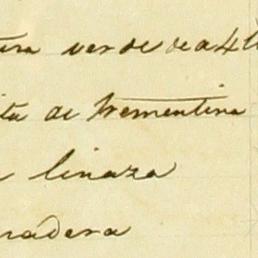 tura verde de a 4 ll
ita de trementina
linaza
madera